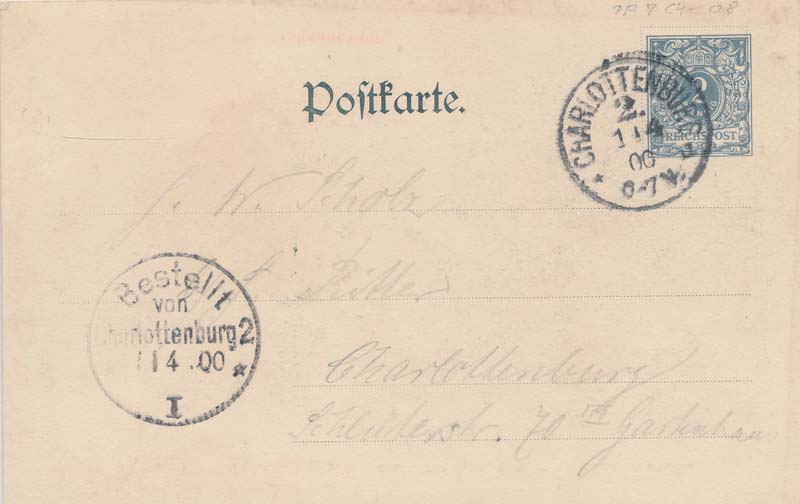 7P 7 C4-08
Postkarte.
2
REICHSPOST
CHARLOTTENBURG
2.
1 4
00
6-7 V.
W. Scholz
Ritter
Bestellt
von
Charlottenburg 2
1 4 .00
I
Charlottenburg
Schlüterstr. 70 III Gartenhaus